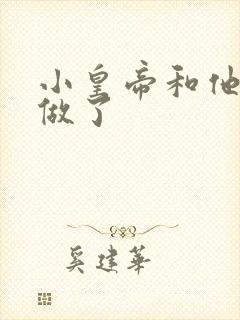 小皇帝和他
做了
奚建华